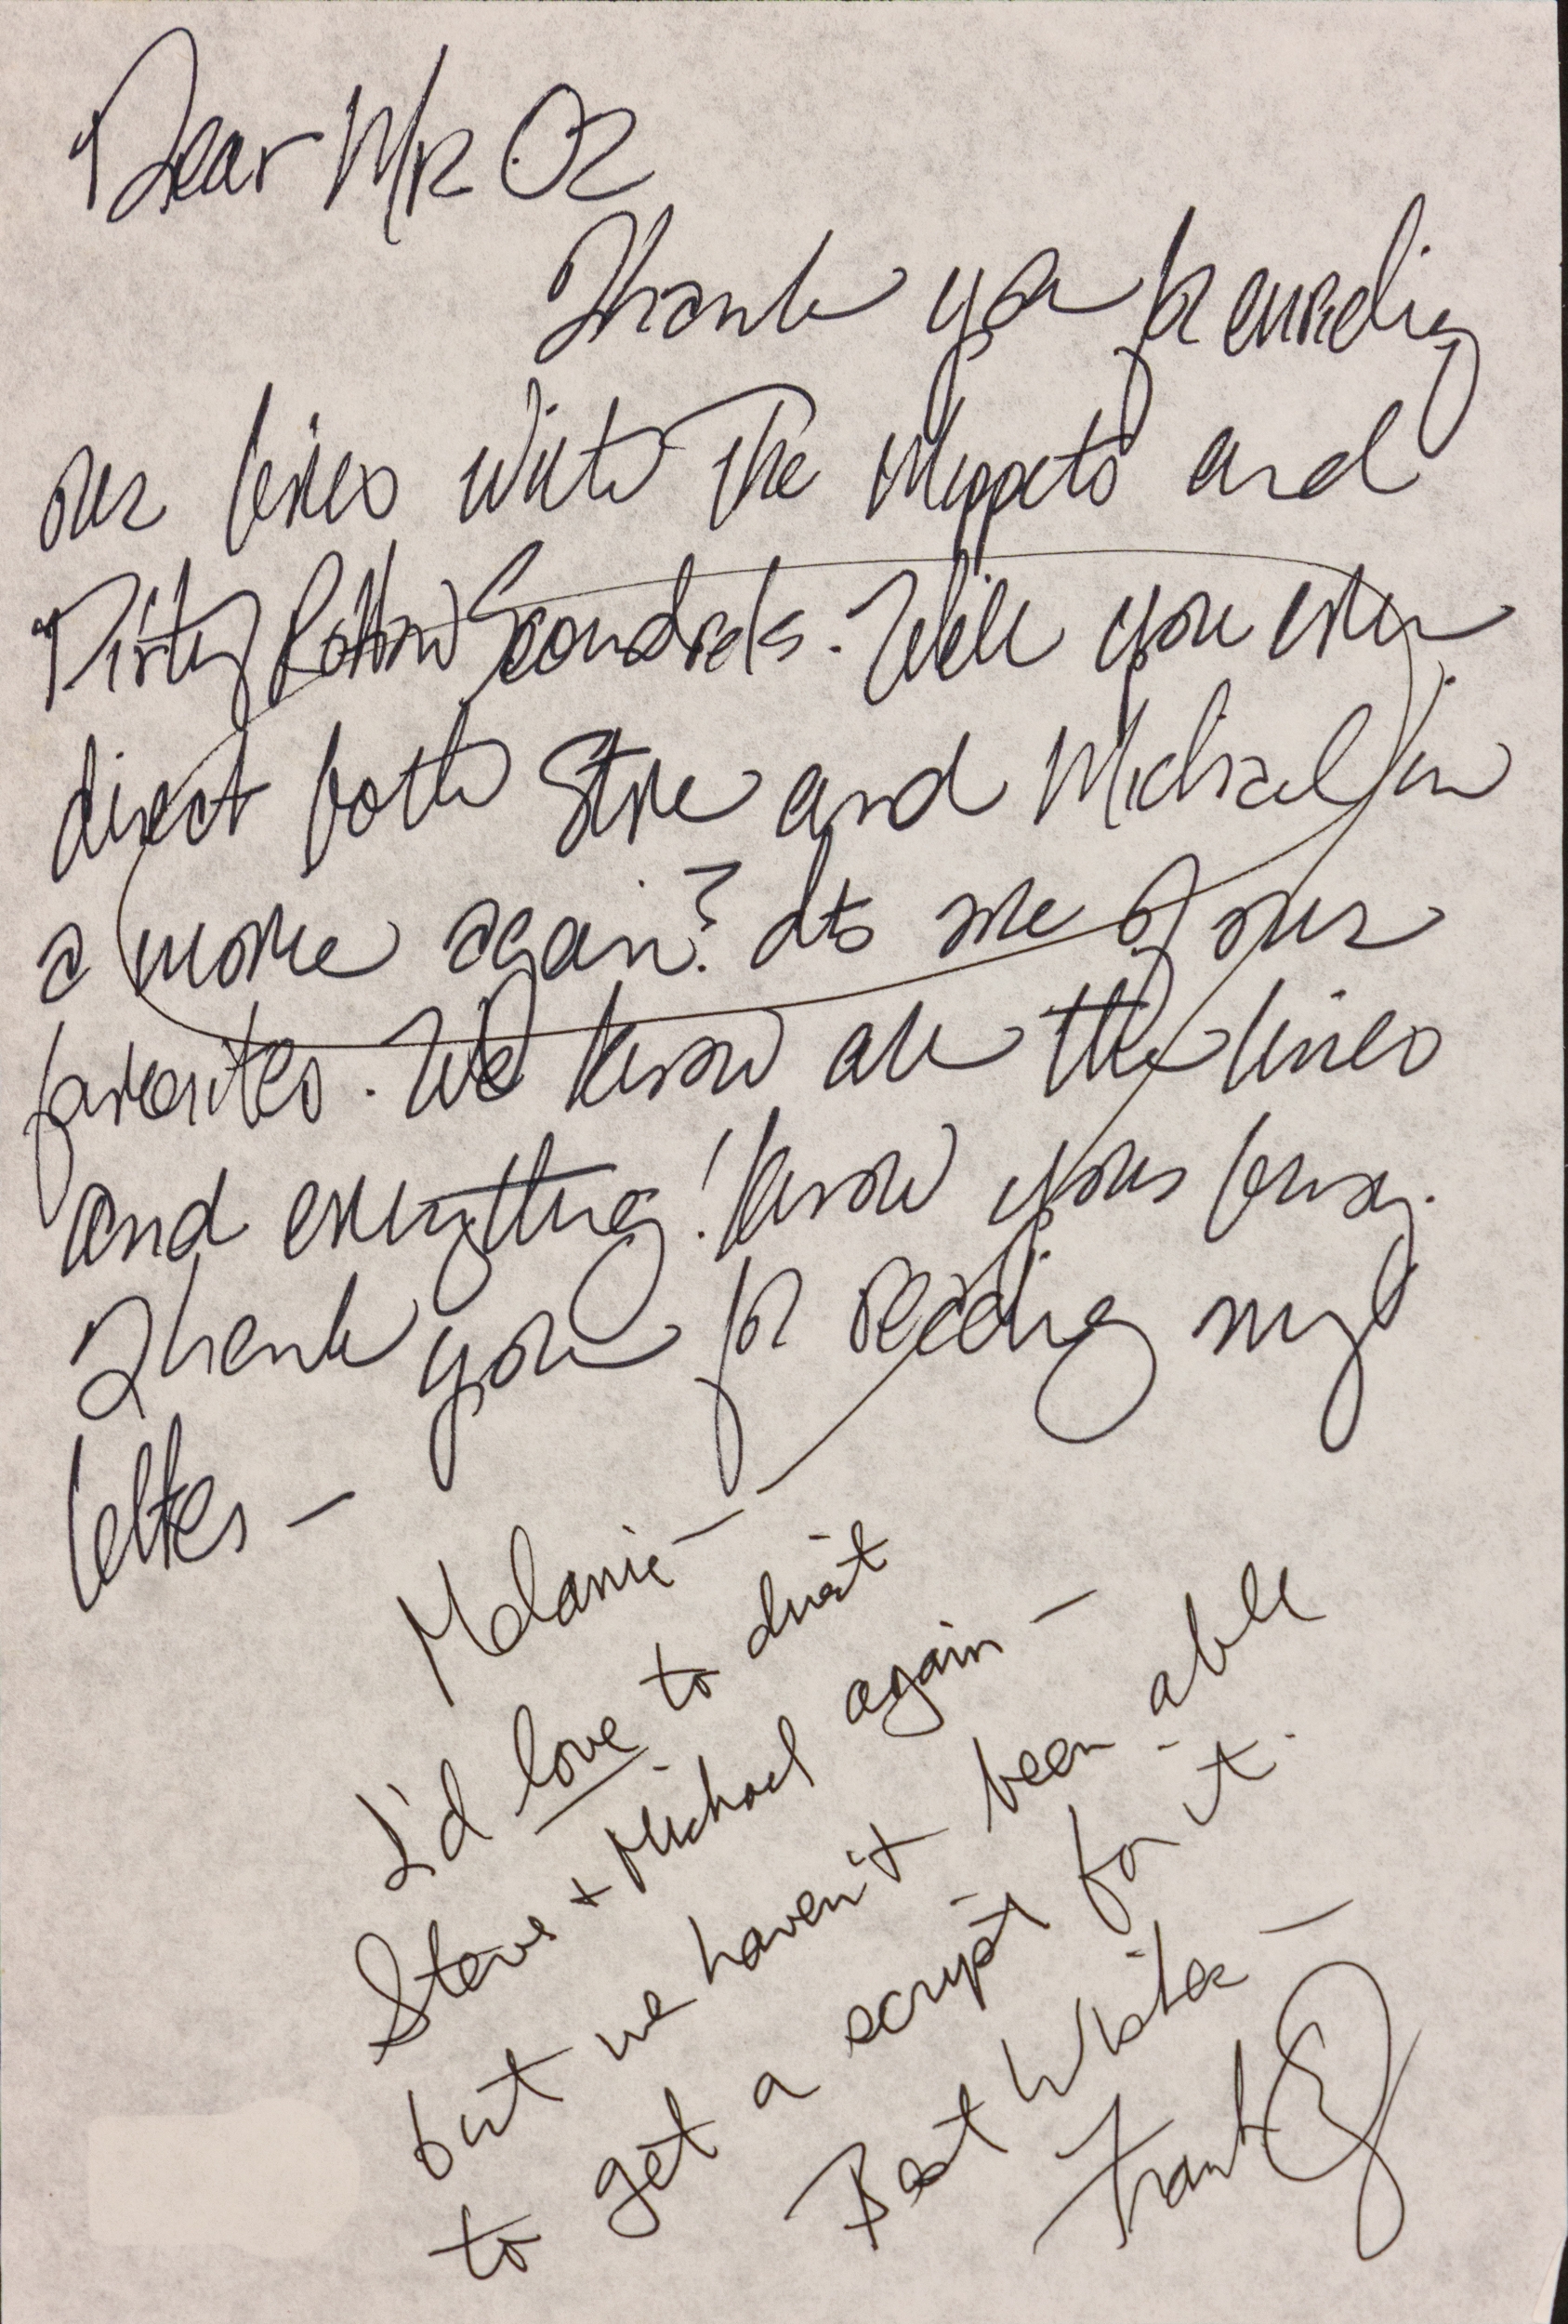 Dear Mr Oz
Thank you for enriching
our lives with the Muppets and
Dirty Rotten Scoundrels. Will you ever
direct both Steve and Michael in
a movie again? Its one of our
favorites. We know all the lines
and everything! know your busy.
Thank you for reading my
letter —
Melanie —
I'd love to direct
Steve + Michael again —
but we haven't been able
to get a script for it.
Best Wishes —
Frank Oz